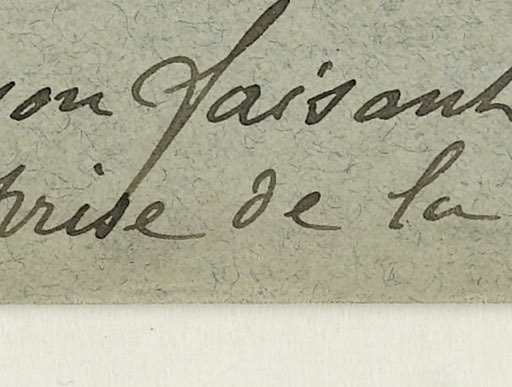 son faisant
prise de la